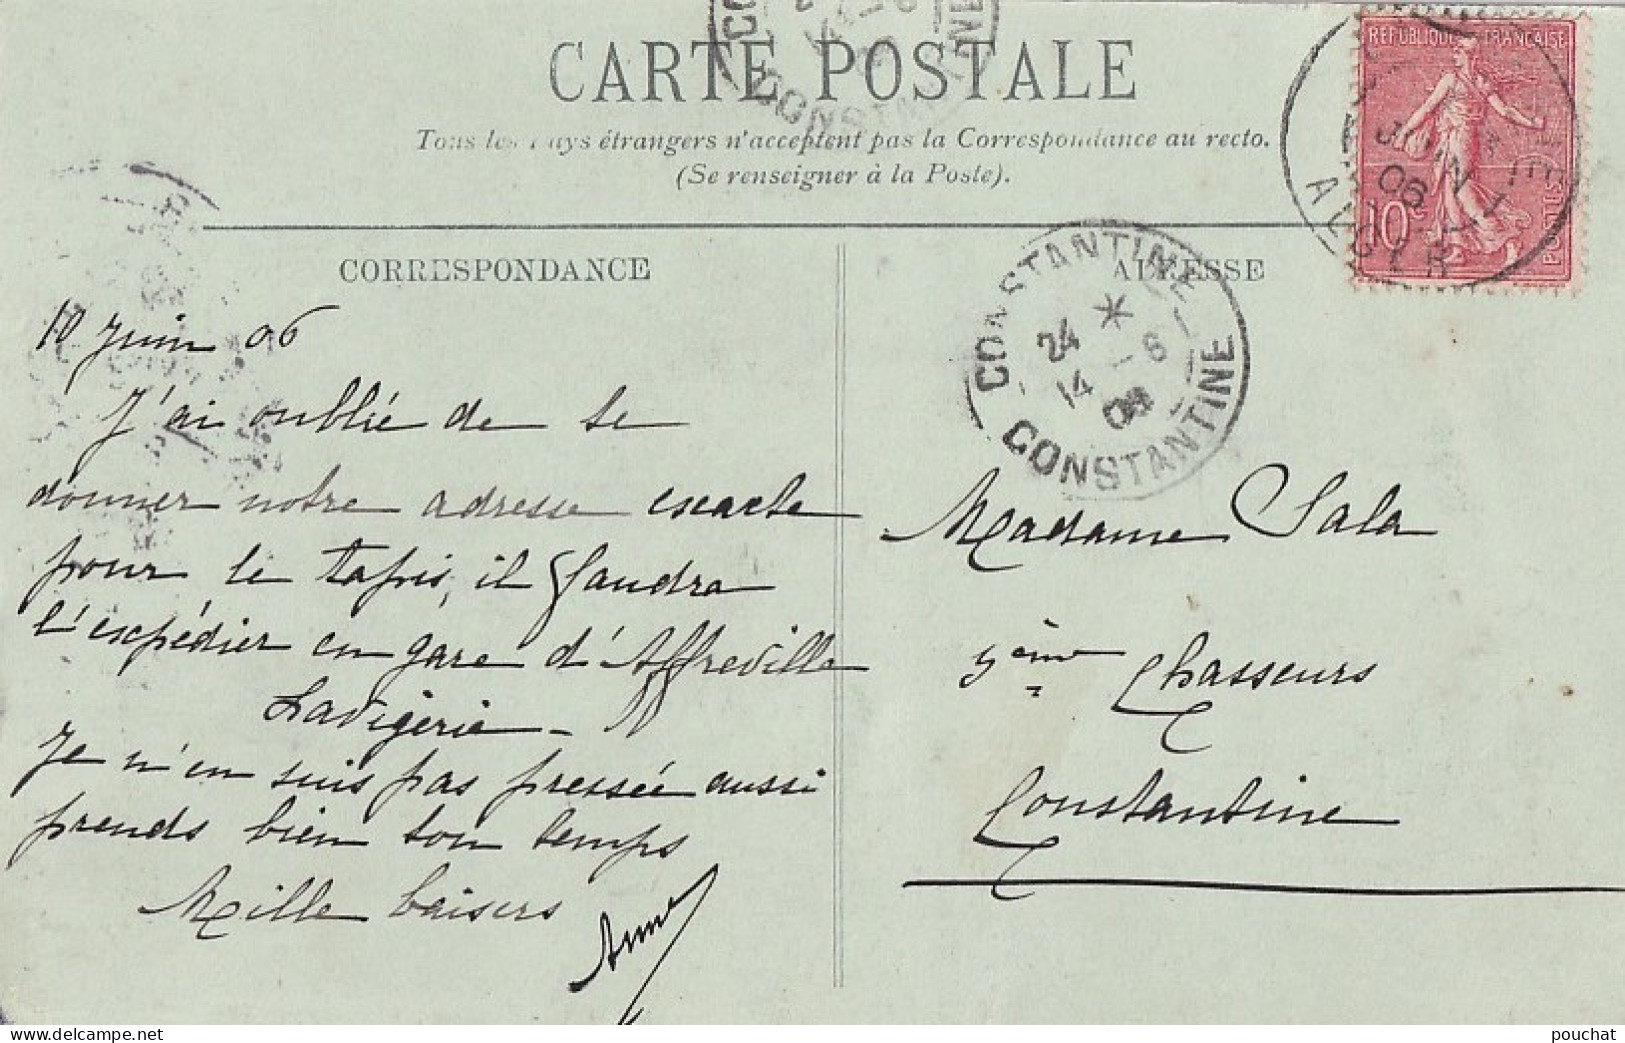 CARTE POSTALE
Tous les Pays étrangers n'acceptent pas la Correspondance au recto.
(Se renseigner à la Poste).
REPUBLIQUE FRANÇAISE
10c
POSTES
JUIN
06
ALGER
CORRESPONDANCE
ADRESSE
CONSTANTINE
24 *
14 - 6
06
CONSTANTINE
10 Juin 06
J'ai oublié de te
donner notre adresse exacte
pour le tapis, il faudra
l'expédier en gare d'Affreville
Lavigerie -
Je n'en suis pas pressée aussi
prends bien ton temps
Mille baisers
Madame Sala
5ème Chasseurs
Constantine
www.delcampe.net
pouchat